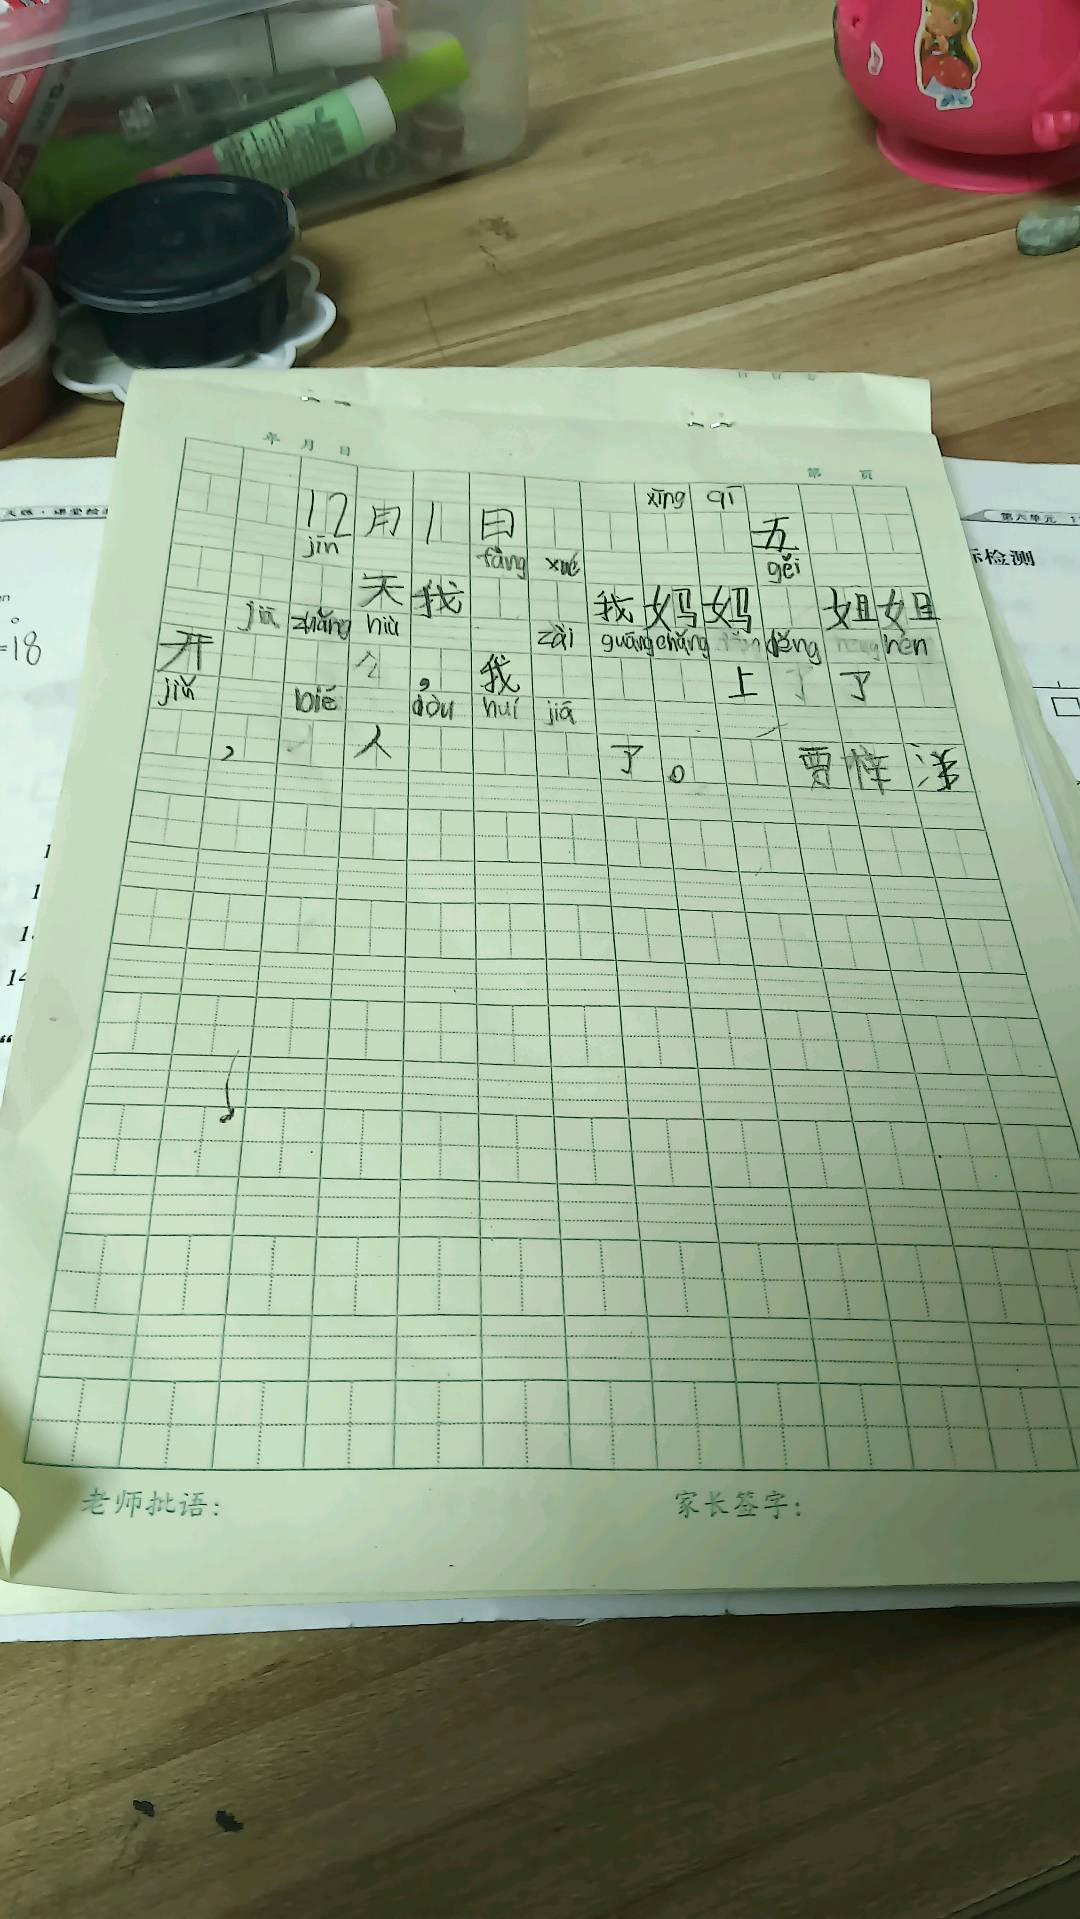 年 月 日
第 页
xīng qī
12月1日 五
jīn fàng xué gěi
天我 我妈妈 姐姐
jiā zhǎng huì zài guāng chǎng děng hěn
开 ，我 上 了
jiǔ bié dōu huí jiā
， 人 了。 贾梓
老师批语：
家长签字：
第六单元
标检测
=18